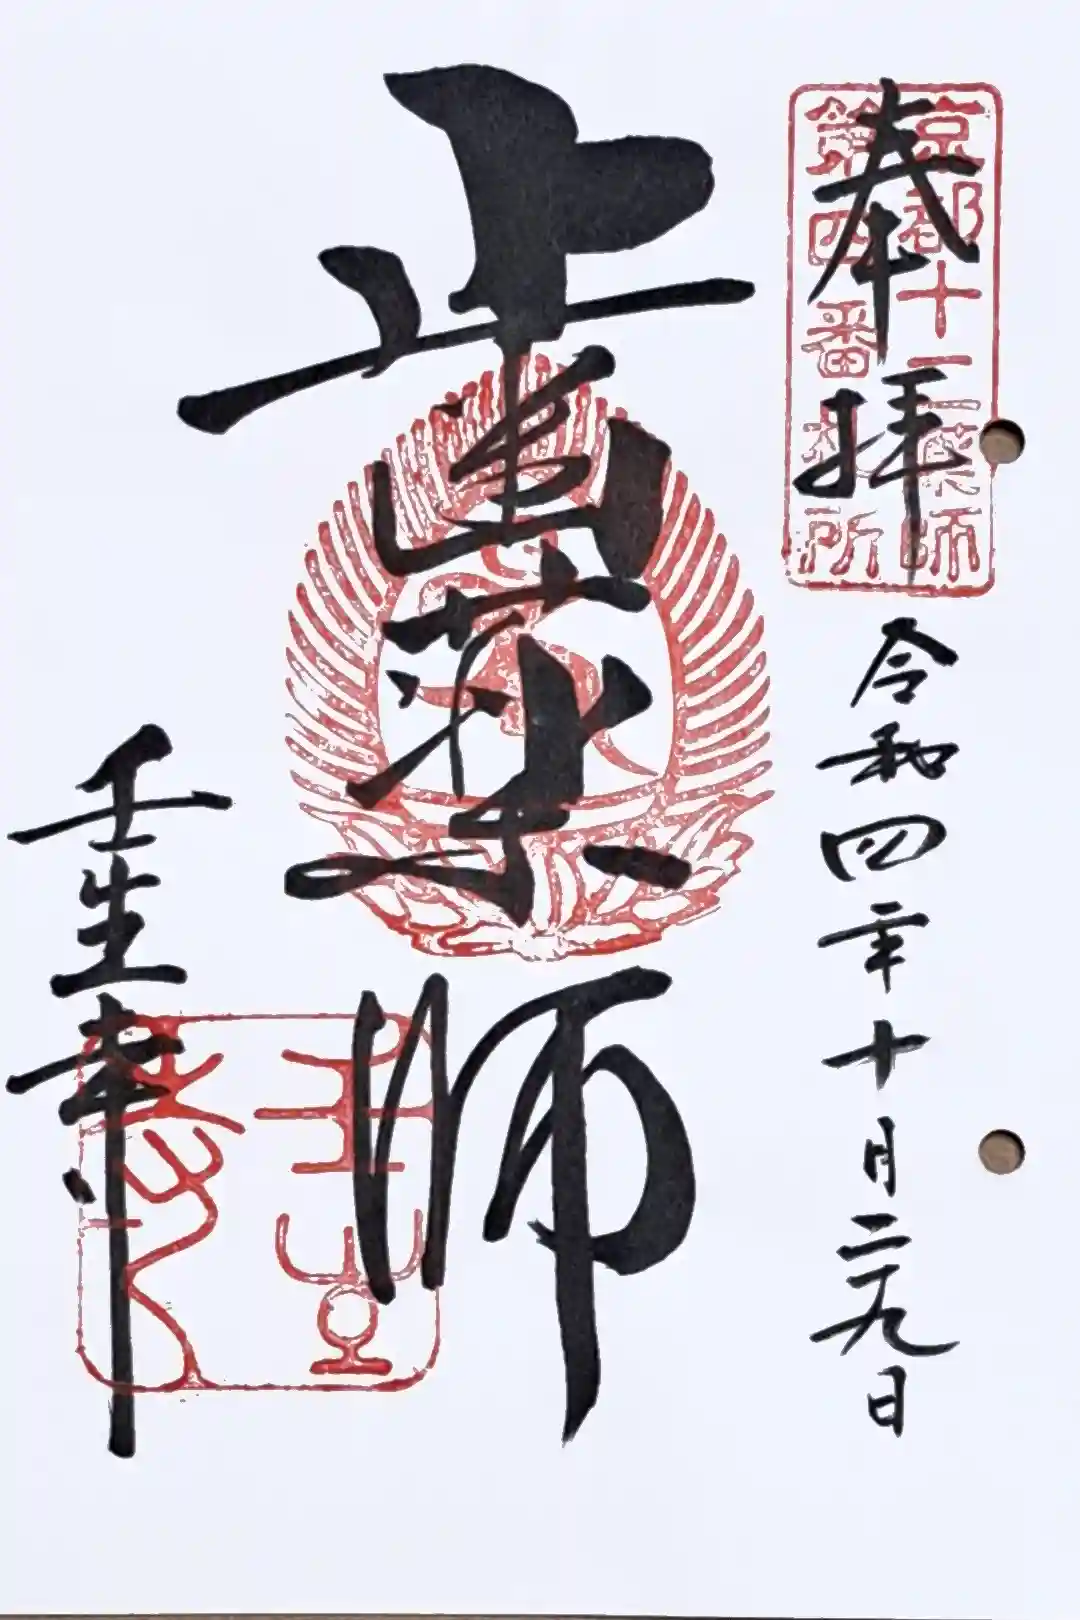 京都十二薬師
第四番札所
奉拝
令和四年十月二九日
歯薬師
壬生寺